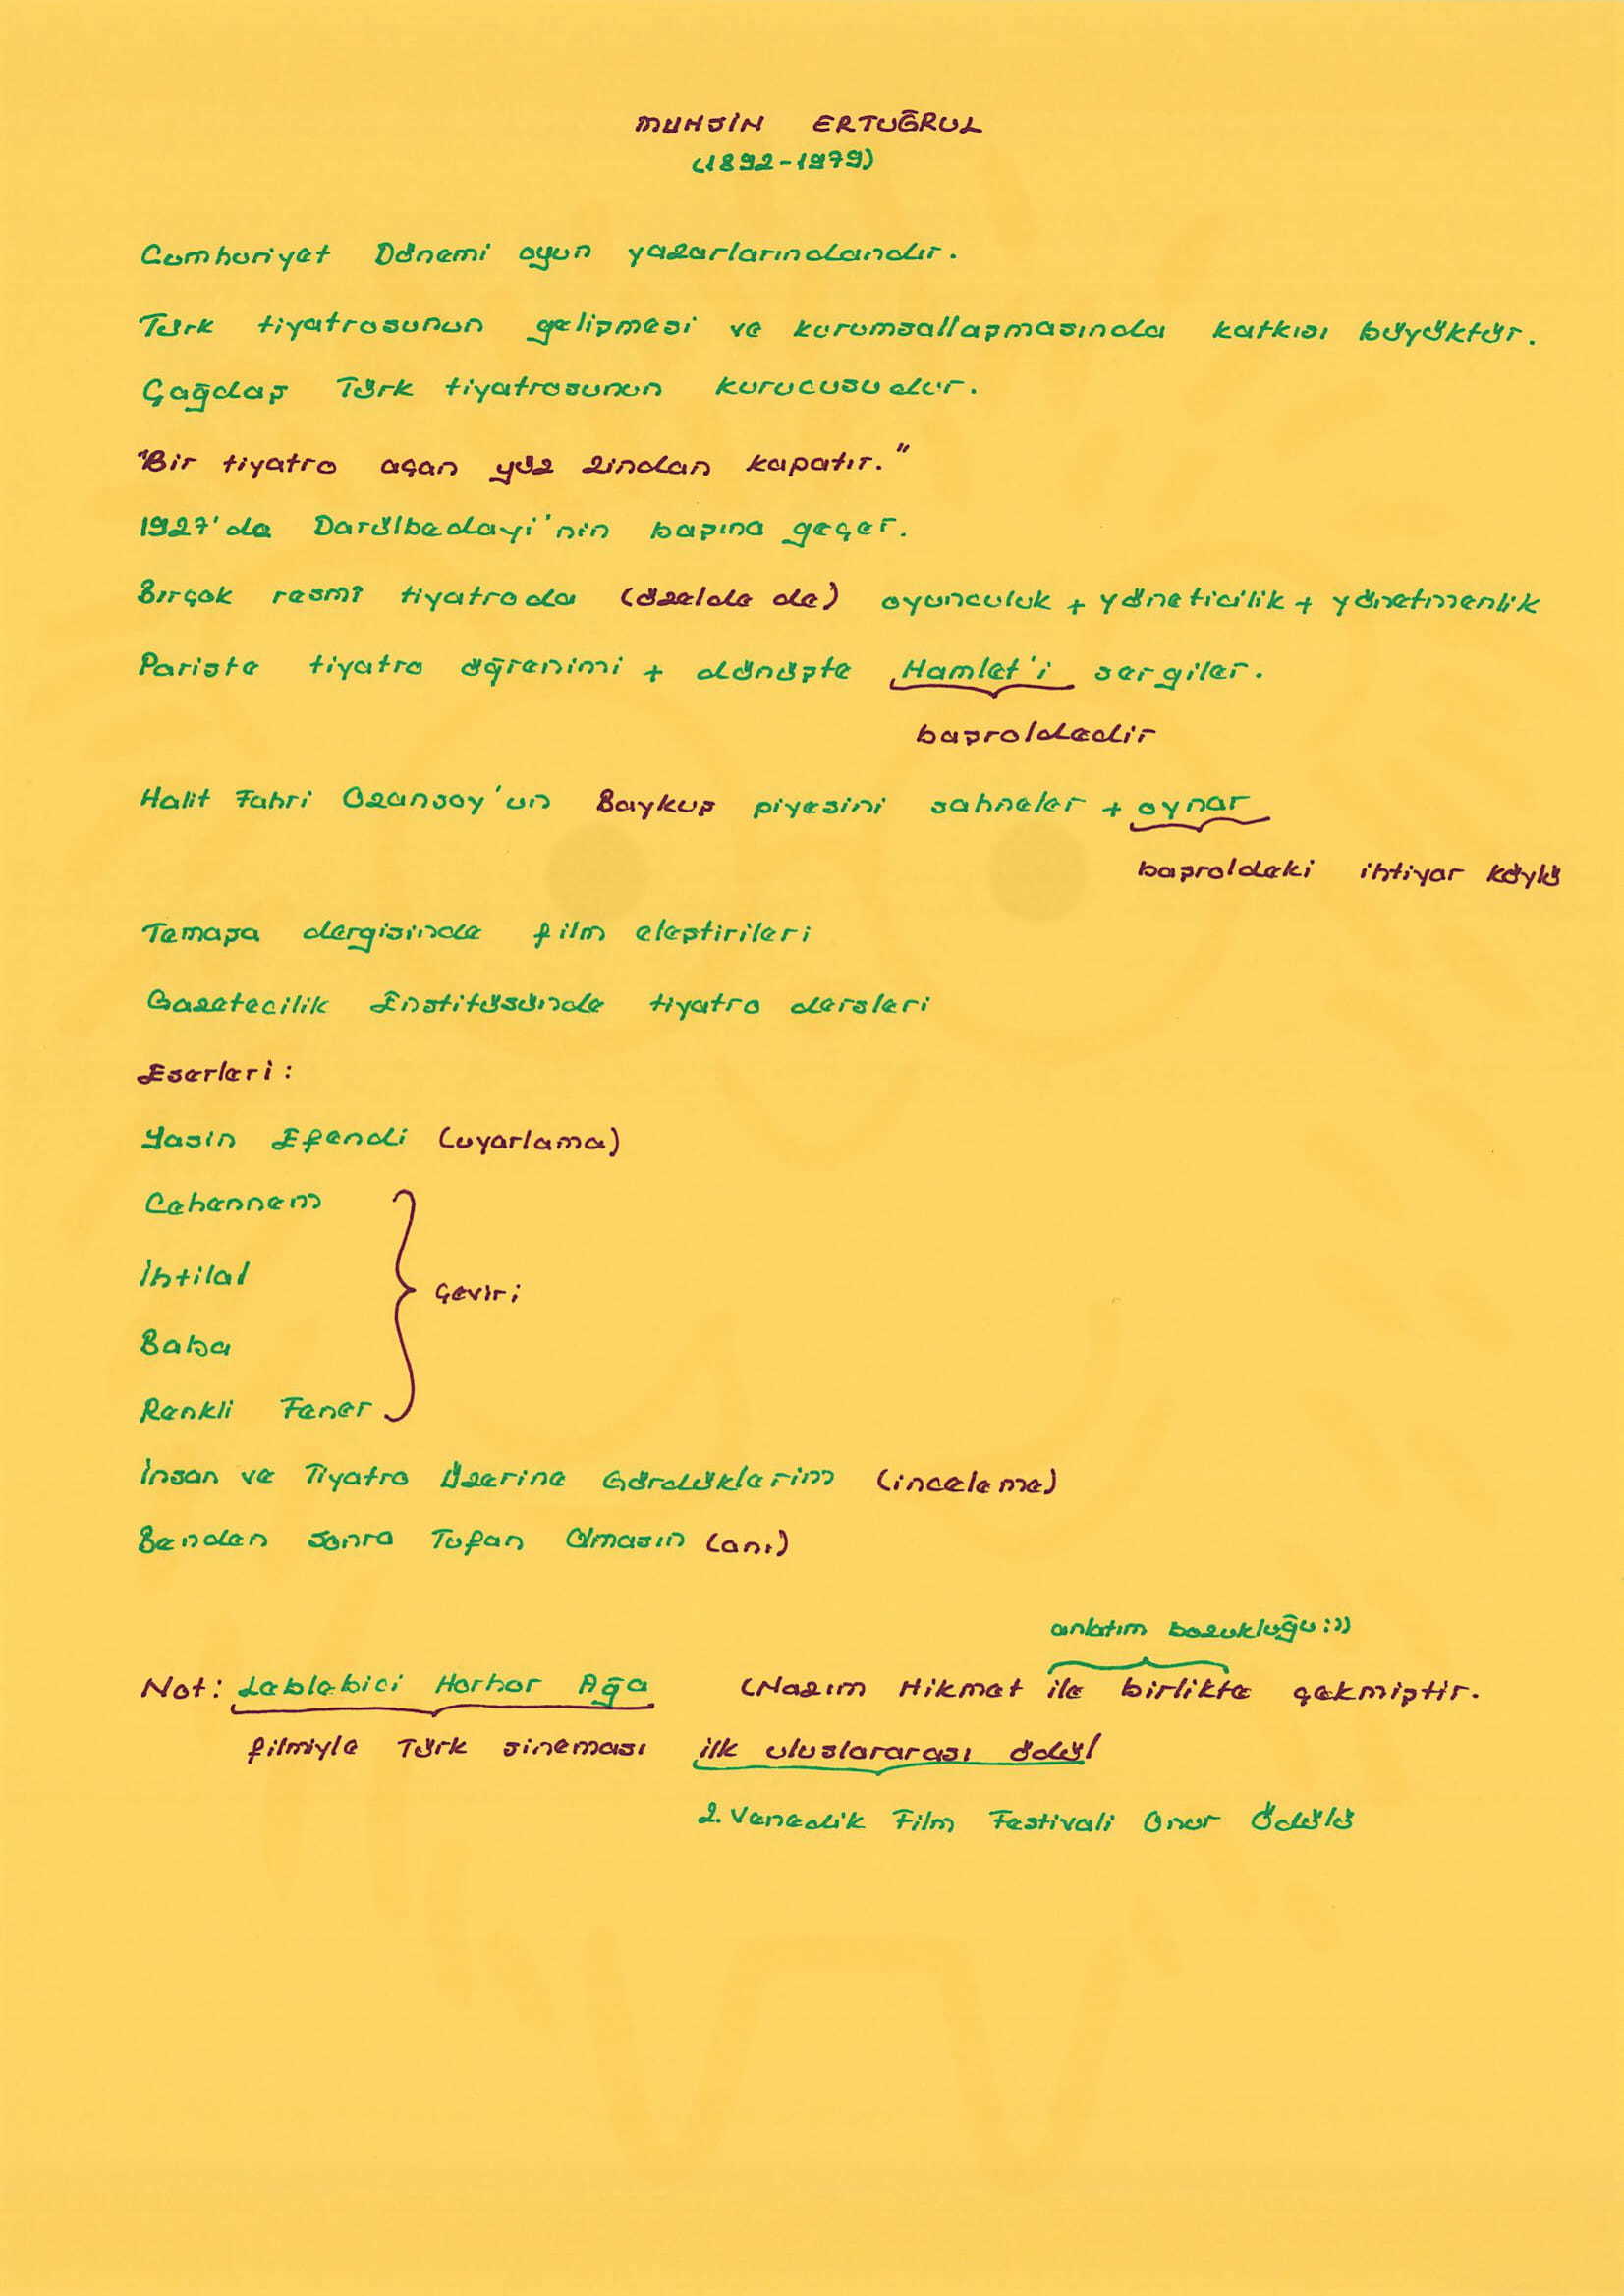 MUHSİN ERTUĞRUL
(1892-1979)
Cumhuriyet Dönemi oyun yazarlarındandır.
Türk tiyatrosunun gelişmesi ve kurumsallaşmasında katkısı büyüktür.
Çağdaş Türk tiyatrosunun kurucusudur.
"Bir tiyatro açan yüz zindan kapatır."
1927'de Darülbedayi'nin başına geçer.
Birçok resmî tiyatroda (özelde de) oyunculuk + yöneticilik + yönetmenlik
Pariste tiyatro öğrenimi + dönüşte Hamlet'i sergiler.
başroldedir
Halit Fahri Ozansoy'un Baykuş piyesini sahneler + oynar
başroldeki ihtiyar köylü
Temaşa dergisinde film eleştirileri
Gazetecilik Enstitüsünde tiyatro dersleri
Eserleri:
Yasin Efendi (uyarlama)
Cehennem
İhtilal
çeviri
Baba
Renkli Fener
İnsan ve Tiyatro Üzerine Gördüklerim (inceleme)
Benden Sonra Tufan Olmasın (anı)
anlatım bozukluğu:))
Not: Leblebici Horhor Ağa (Nazım Hikmet ile birlikte çekmiştir.
filmiyle Türk sineması ilk uluslararası ödül
2. Venedik Film Festivali Onur Ödülü